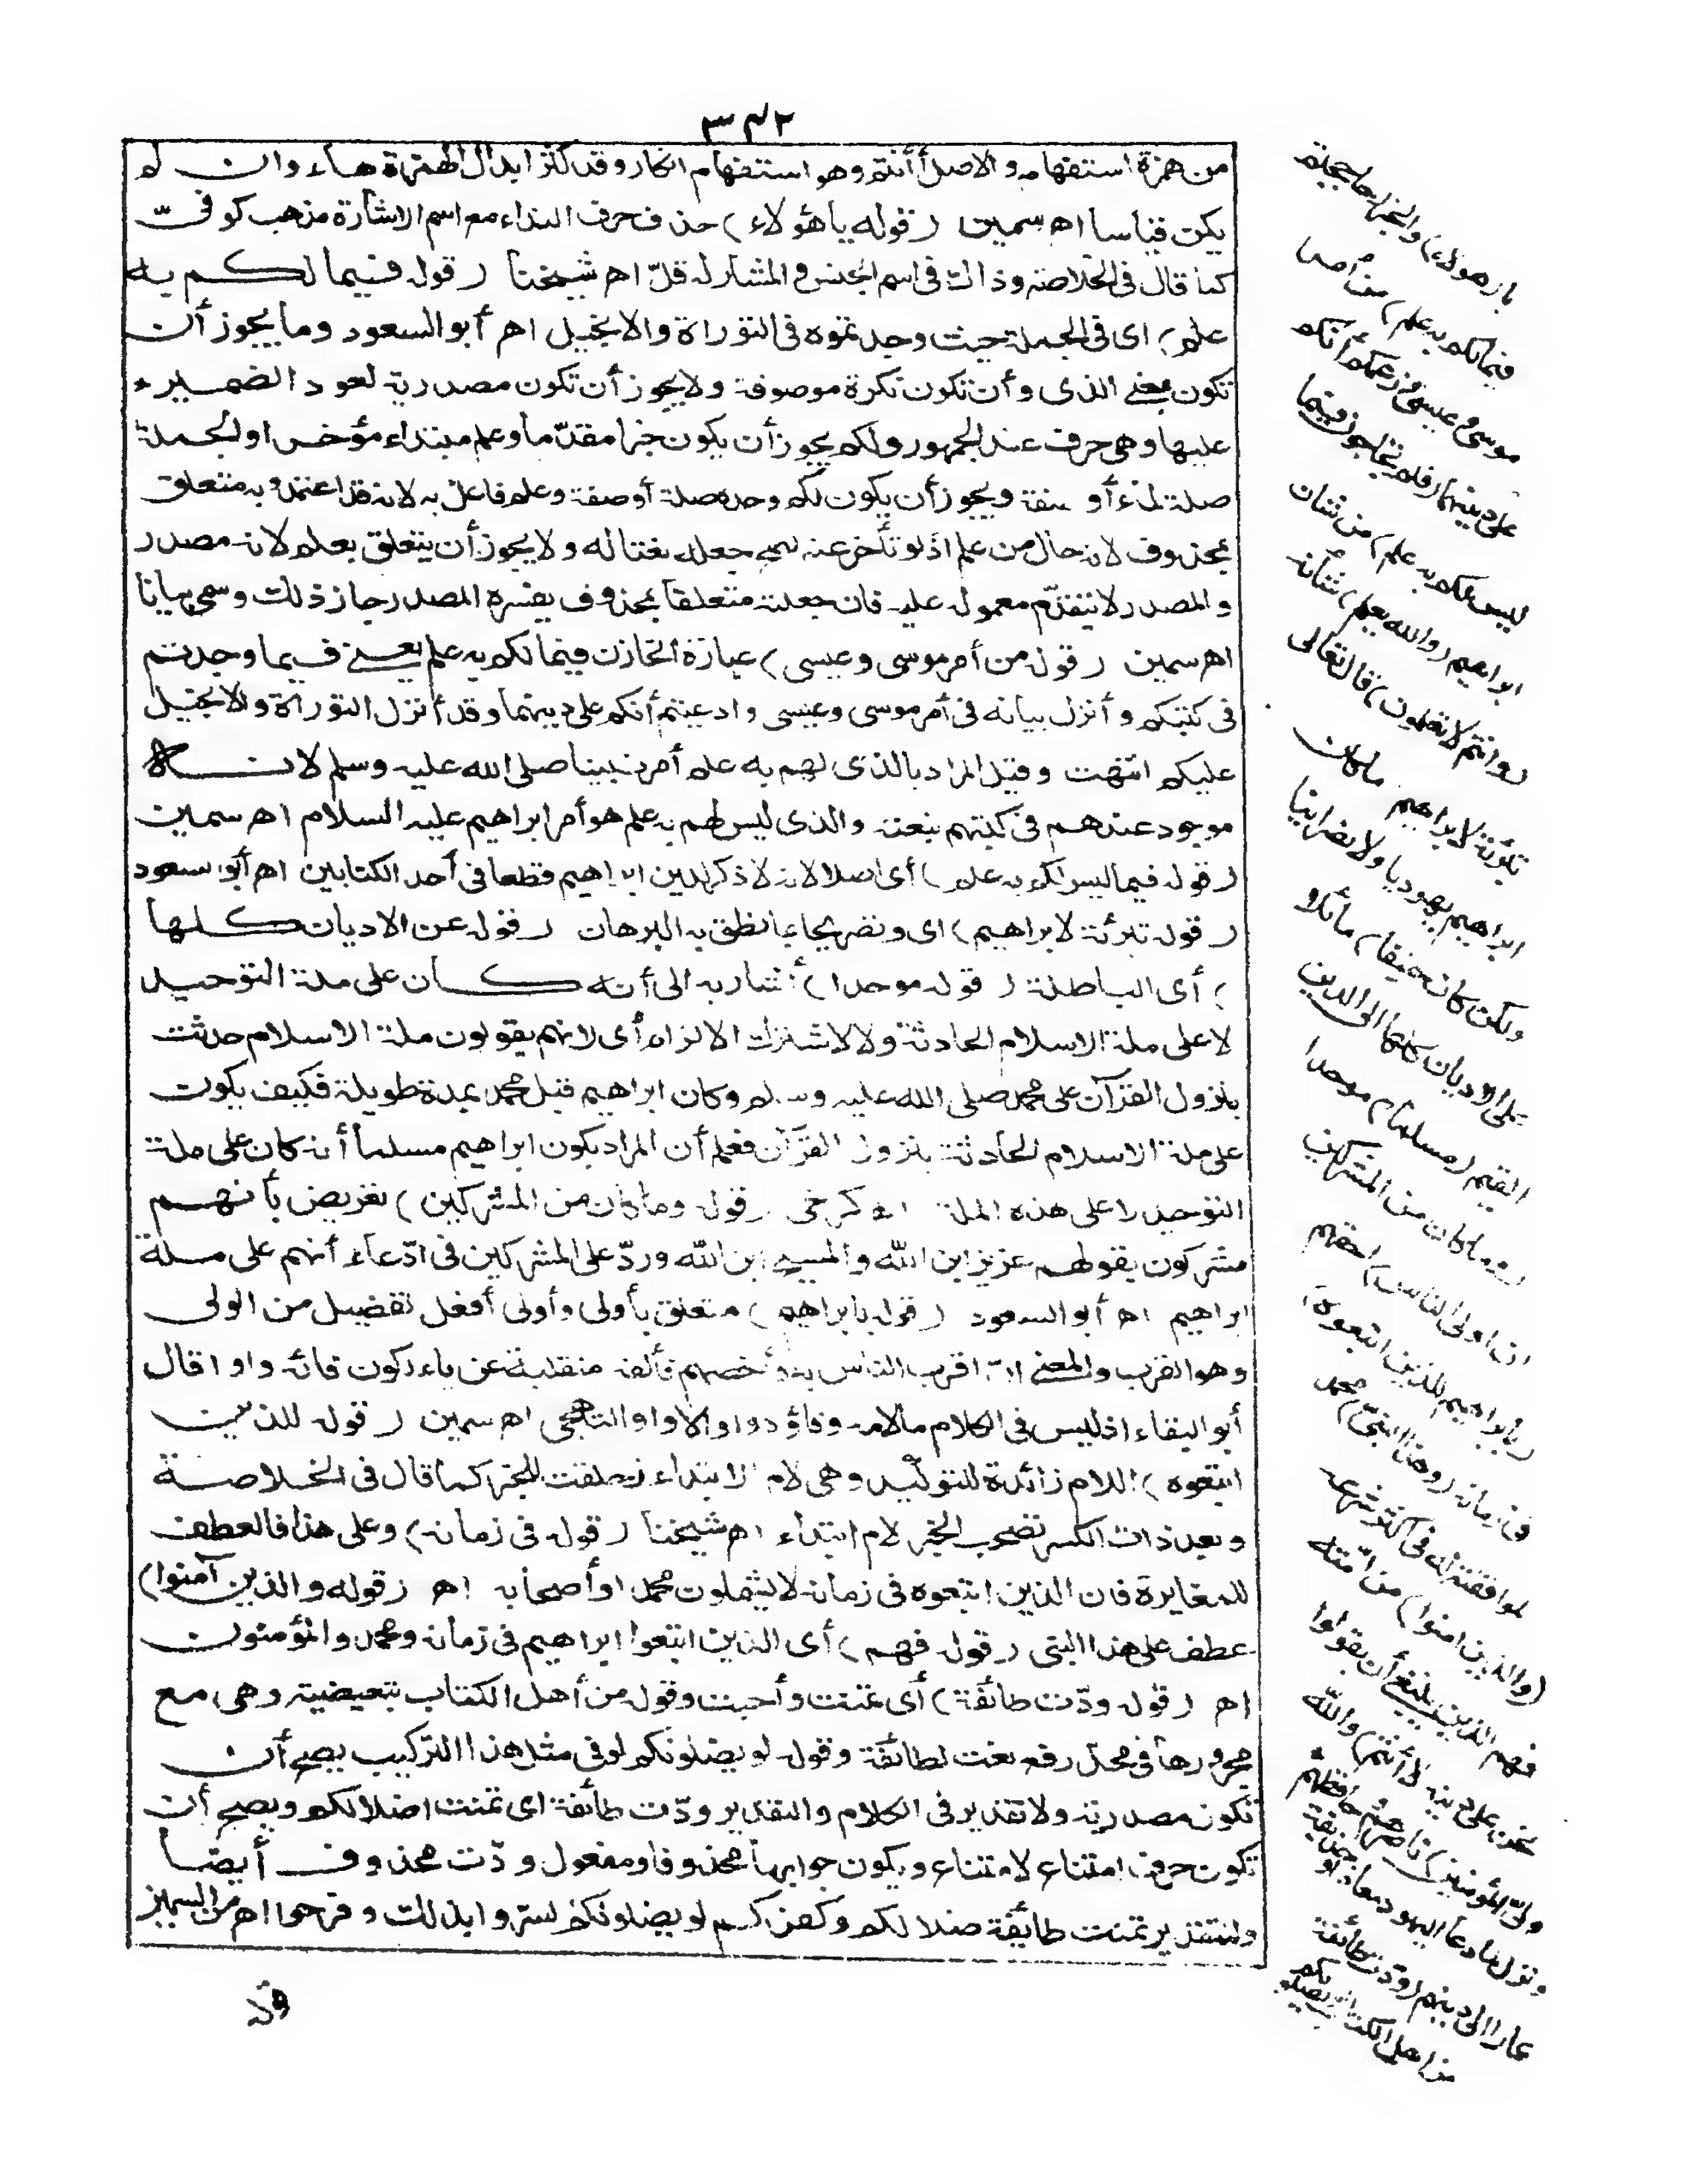 ٣٤٢
من همزة استفهام والاصل أأنتم وهو استفهام انكار وقد كثر ابدال الهمزة هاء وان لم
يكن قياسا اه سمين (قوله يا هؤلاء) حذف حرف النداء مع اسم الاشارة مذهب كوفىّ
كما قال فى الخلاصة وذاك فى اسم الجنس والمشار له قلّ اه شيخنا (قوله فيما لكم به
علم) اى فى الجملة حيث وجدتموه فى التوراة والانجيل اه أبو السعود وما يجوز أن
تكون بمعنى الذى وأن تكون نكرة موصوفة ولا يجوز أن تكون مصدرية لعود الضمير
عليها وهى حرف عند الجمهور ولكم يجوز أن يكون خبرا مقدّما وعلم مبتداء مؤخر او الجملة
صلة لما أو صفة ويجوز أن يكون لكم وحده صلة أو صفة وعلم فاعل به لانه قد اعتمد وبه متعلق
بمحذوف لانه حال من علم اذ لو تأخر عنه لصح جعله نعتا له ولا يجوز أن يتعلق بعلم لانه مصدر
والمصدر لا يتقدّم معموله عليه فان جعلته متعلقا بمحذوف يفسره المصدر جاز ذلك وسمى بيانا
اه سمين (قوله من أمر موسى وعيسى) عبارة الخازن فيما لكم به علم يعنى فيما وجدتم
فى كتبكم وأنزل بيانه فى أمر موسى وعيسى وادعيتم أنكم على دينهما وقد أنزل التوراة والانجيل
عليكم انتهت وقيل المراد بالذى لهم به علم أمر نبينا صلى الله عليه وسلم لانه
موجود عندهم فى كتبهم بنعته والذى ليس لهم به علم هو أمر ابراهيم عليه السلام اه سمين
(قوله فيما ليس لكم به علم) أى اصلا لانه لا ذكر لدين ابراهيم قطعا فى أحد الكتابين اه أبو سعود
(قوله تبرئة لابراهيم) اى وتصريحا بما نطق به البرهان (قوله عن الاديان كلها
) أى الباطلة (قوله موحدا) أشار به الى أنه كان على ملة التوحيد
لا على ملة الاسلام الحادثة والا لاشترك الالزام أى لانهم يقولون ملة الاسلام حدثت
بنزول القرآن على محمد صلى الله عليه وسلم وكان ابراهيم قبل محمد بمدة طويلة فكيف يكون
على ملة الاسلام الحادثة بنزول القرآن فعلم أن المراد بكون ابراهيم مسلما أنه كان على ملة
التوحيد لا على هذه الملة اه كرخى (قوله وما كان من المشركين) تعريض بأنهم
مشركون بقولهم عزيز ابن الله والمسيح ابن الله وردّ على المشركين فى ادّعاء أنهم على ملة
ابراهيم اه أبو السعود (قوله بابراهيم) متعلق بأولى وأولى أفعل تفضيل من الولى
وهو القرب والمعنى انّ اقرب الناس به وأخصهم فألفه منقلبة عن ياء لكون فائه واوا قال
أبو البقاء اذ ليس فى الكلام ما لامه وفاؤه واو الا واو التهجى اه سمين (قوله للذين
اتبعوه) اللام زائدة للتوكيد وهى لام الابتداء زحلقت للخبر كما قال فى الخلاصة
وبعد ذات الكسر تصحب الخبر لام ابتداء اه شيخنا (قوله فى زمانه) وعلى هذا فالعطف
للمغايرة فان الذين اتبعوه فى زمانه لا يشملون محمدا وأصحابه اه (قوله والذين آمنوا)
عطف على هذا النبى (قوله فهم) أى الذين اتبعوا ابراهيم فى زمانه ومحمد والمؤمنون
اه (قوله ودّت طائفة) أى تمنت وأحبت وقوله من أهل الكتاب تبعيضية وهى مع
مجرورها فى محل رفع نعت لطائفة وقوله لو يضلونكم لو فى مثل هذا التركيب يصح أن
تكون مصدرية ولا تقدير فى الكلام والتقدير ودّت طائفة اى تمنت اضلالكم ويصح أن
تكون حرف امتناع لامتناع ويكون جوابها محذوفا ومفعول ودّت محذوف أيضا
والتقدير تمنت طائفة ضلالكم وكفركم لو يضلونكم لسروا بذلك وفرحوا اه من السمين
يا (هؤلاء) والخبر (حاججتم
فيما لكم به علم) من أمر
موسى وعيسى وزعمكم أنكم
على دينهما (فلم تحاجون فيما
ليس لكم به علم) من شان
ابراهيم (والله يعلم) شأنه
(وانتم لا تعلمون) قال تعالى
تبرئة لابراهيم (ما كان
ابراهيم يهوديا ولا نصرانيا
ولكن كان حنيفا) مائلا
عن الاديان كلها الى الدين
القيم (مسلما) موحدا
(وما كان من المشركين
ان اولى الناس) احقهم
(بابراهيم للذين اتبعوه)
فى زمانه (وهذا النبىّ) محمد
لموافقته له فى اكثر شرعه
(والذين امنوا) من امّته
فهم الذين ينبغى أن يقولوا
نحن على دينه لا أنتم (والله
ولىّ المؤمنين) ناصرهم وحافظهم
ونزل لما دعا اليهود معاذا وحذيفة
وعمارا الى دينهم (ودّت طائفة
من اهل الكتاب لو يضلونكم
قوله